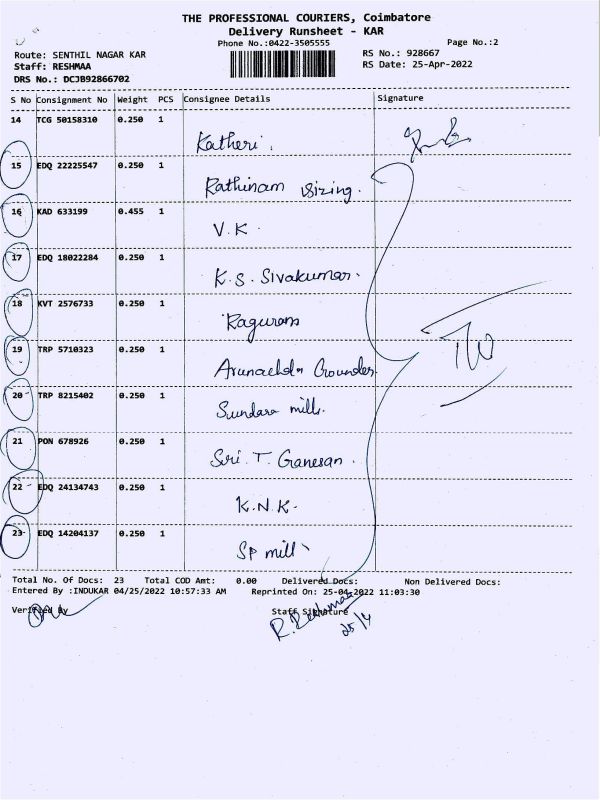 THE PROFESSIONAL COURIERS, Coimbatore
Delivery Runsheet - KAR
Phone No.:0422-3505555 Page No.:2
Route: SENTHIL NAGAR KAR RS No.: 928667
Staff: RESHMAA RS Date: 25-Apr-2022
DRS No.: DCJB92866702
S No Consignment No Weight PCS Consignee Details Signature
14 TCG 50158310 0.250 1
Katheri.
15 EDQ 22225547 0.250 1
Rathinam sizing.
16 KAD 633199 0.455 1
V.K.
17 EDQ 18022284 0.250 1
K.S. Sivakumar.
18 KVT 2576733 0.250 1
Raguram
19 TRP 5710323 0.250 1
Gounder.
20 TRP 8215402 0.250 1
Sundara mills.
21 PON 678926 0.250 1
T. Ganesan.
22 EDQ 24134743 0.250 1
K.N.K.
23 EDQ 14204137 0.250 1
SP mill
Total No. Of Docs: 23 Total COD Amt: 0.00 Delivered Docs: Non Delivered Docs:
Entered By :INDUKAR 04/25/2022 10:57:33 AM Reprinted On: 25-04-2022 11:03:30
Verified By Staff Signature
R. Reshmaa
25/4